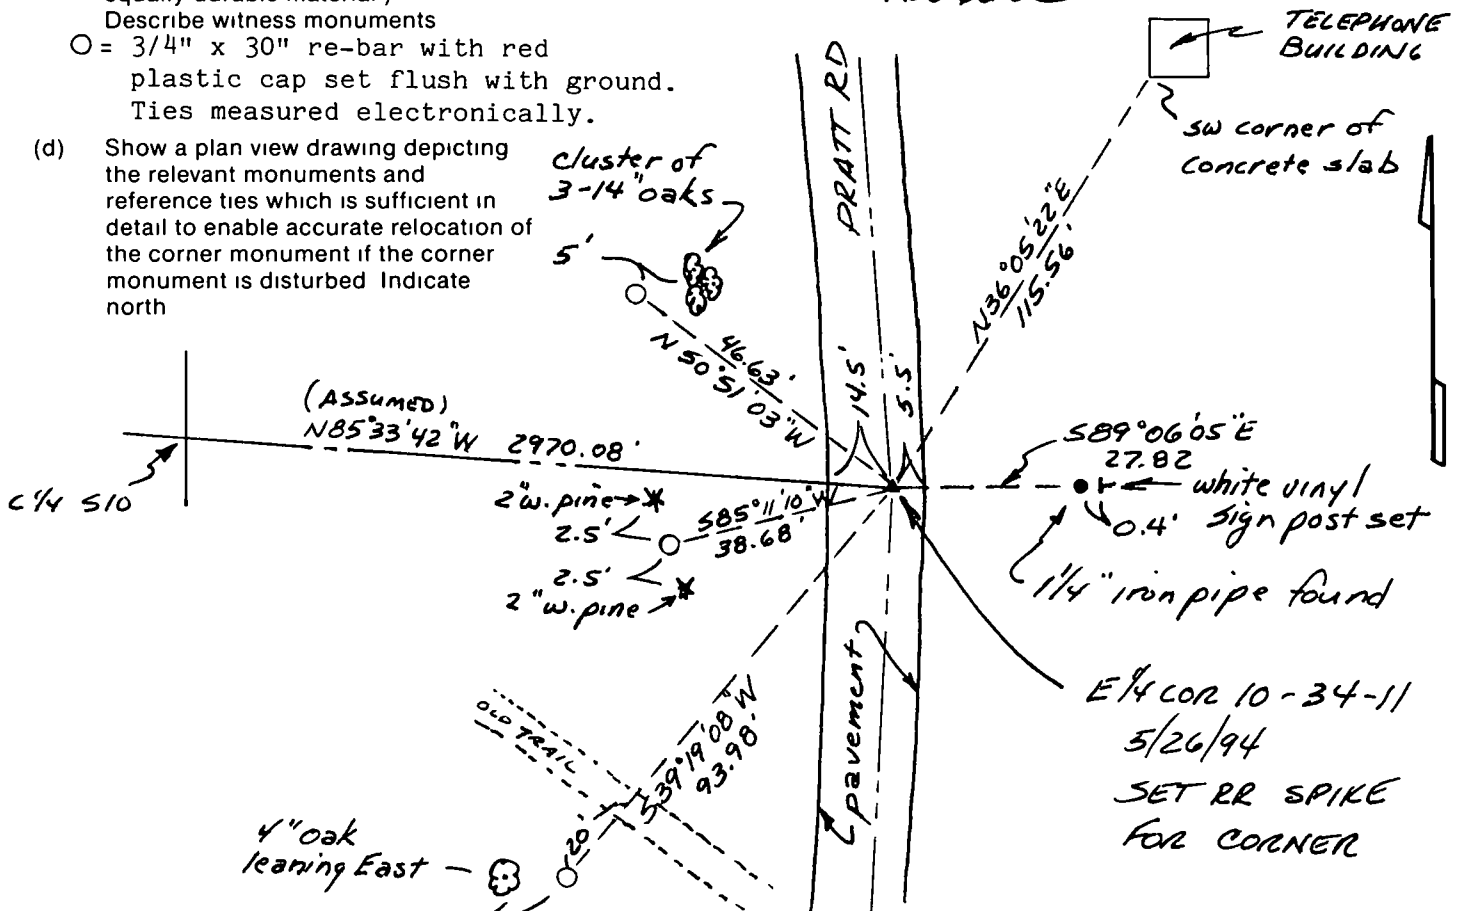 Describe witness monuments
O = 3/4" x 30" re-bar with red
plastic cap set flush with ground.
Ties measured electronically.
(d) Show a plan view drawing depicting
the relevant monuments and
reference ties which is sufficient in
detail to enable accurate relocation of
the corner monument if the corner
monument is disturbed Indicate
north
TELEPHONE
BUILDING
SW corner of
concrete slab
PRATT RD
cluster of
3-14" oaks
5'
N36°05'22"E
115.56'
46.63'
N50°51'03"W
14.5'
5.5'
(ASSUMED)
N85°33'42"W 2970.08'
C 1/4 S10
S89°06'05"E
27.82
white vinyl
sign post set
0.4'
1 1/4" iron pipe found
2" w. pine
2.5'
S85°11'10"W
38.68'
2.5'
2" w. pine
E 1/4 COR 10-34-11
5/26/94
SET RR SPIKE
FOR CORNER
pavement
OLD TRAIL
S39°19'08"W
93.98'
20'
4" oak
leaning East